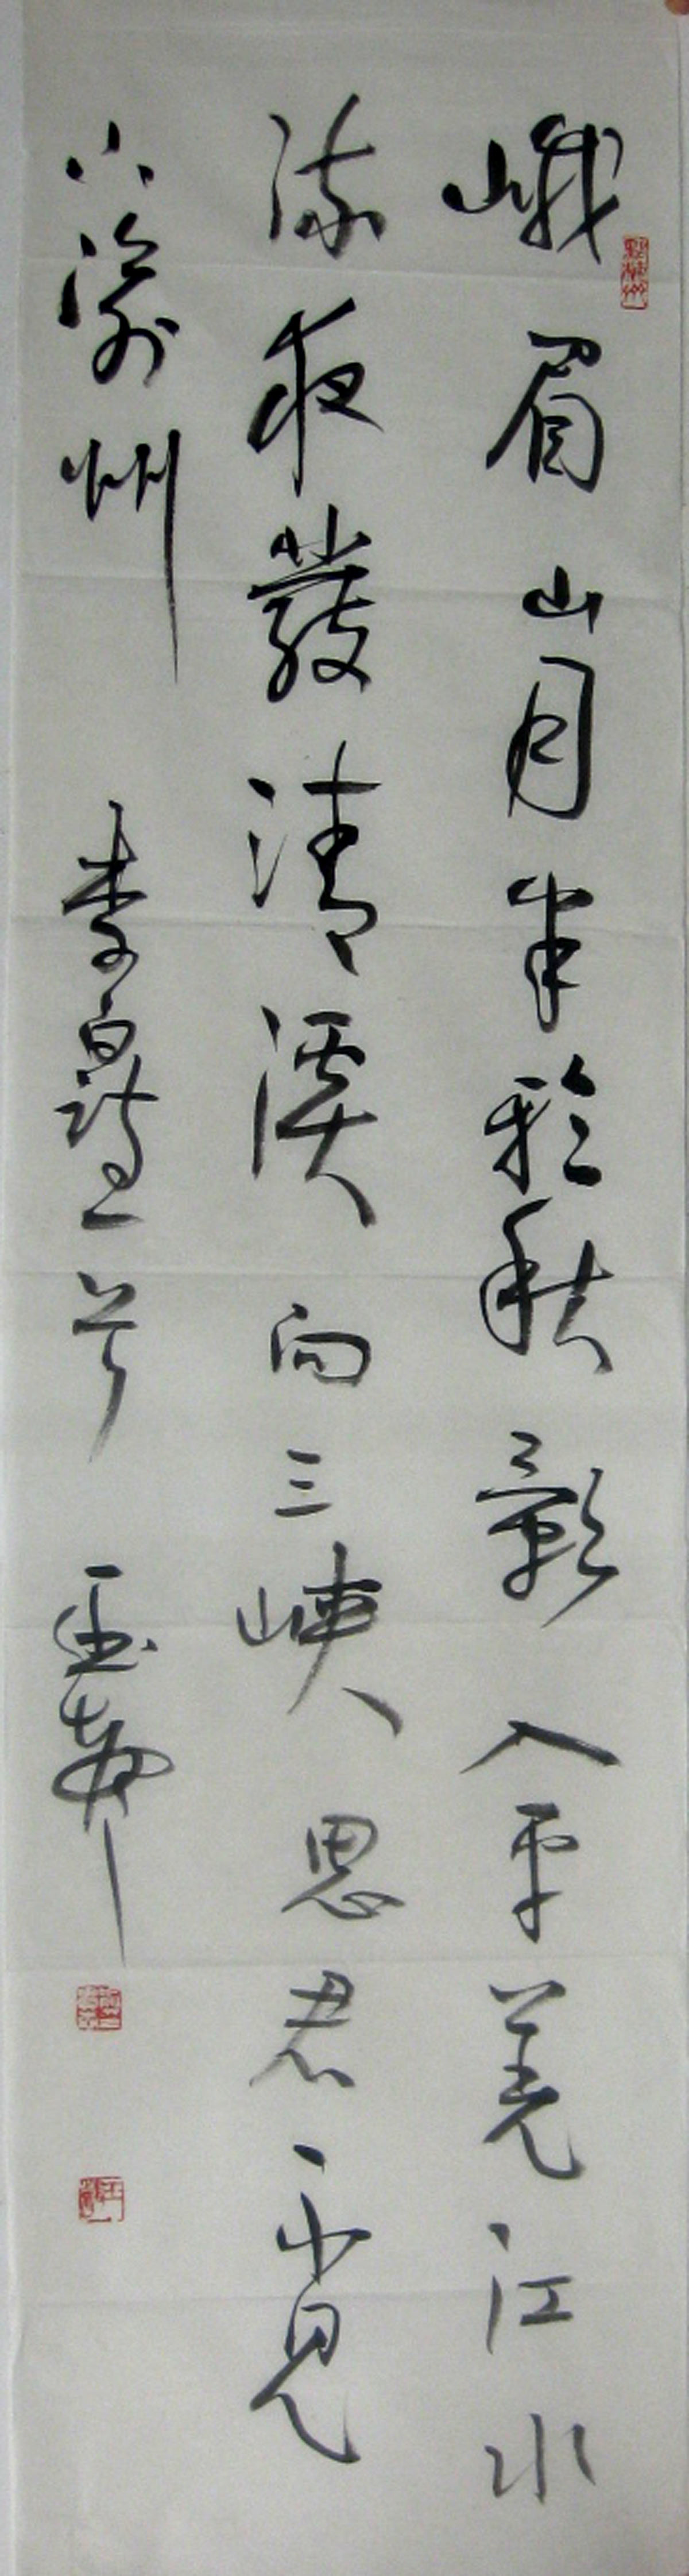 峨眉山月半輪秋影入平羌江水
流夜發清溪向三峽思君不見
下渝州 李白詩一首